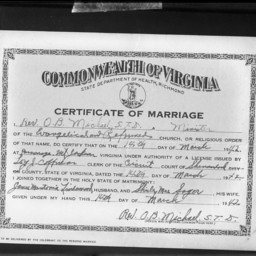 COMMONWEALTH OF VIRGINIA
STATE DEPARTMENT OF HEALTH, RICHMOND
CERTIFICATE OF MARRIAGE
I Rev. O B Michael S.T.D. Minister
OF THE Evangelical and Reformed CHURCH, OR RELIGIOUS ORDER
OF THAT NAME, DO CERTIFY THAT ON THE 15th DAY OF March 1942
AT VIRGINIA, UNDER AUTHORITY OF A LICENSE ISSUED BY
CLERK OF THE Circuit COURT OF
COUNTY, STATE OF VIRGINIA, DATED THE DAY OF March 1942
I JOINED TOGETHER IN THE HOLY STATE OF MATRIMONY
HUSBAND, AND Shirley Mae HIS WIFE.
GIVEN UNDER MY HAND THIS 15th DAY OF March 1942
Rev. O. B. Michael S. T. D.